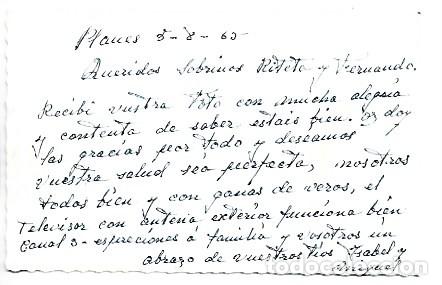 Planes 5-8-65
Queridos Sobrinos Riteta y Fernando.
Recibi vustra foto con mucha alegria
y contenta de saber estais bien. os doy
las gracias por todo y deseamos
vuestra salud sea perfecta, nosotros
todos bien y con ganas de veros, el
Televisor con antena exterior funciona bien
Canal 3- espreciones á familia y vosotros un
abrazo de vuestros tios Isabel y
Miguel
todocoleccion